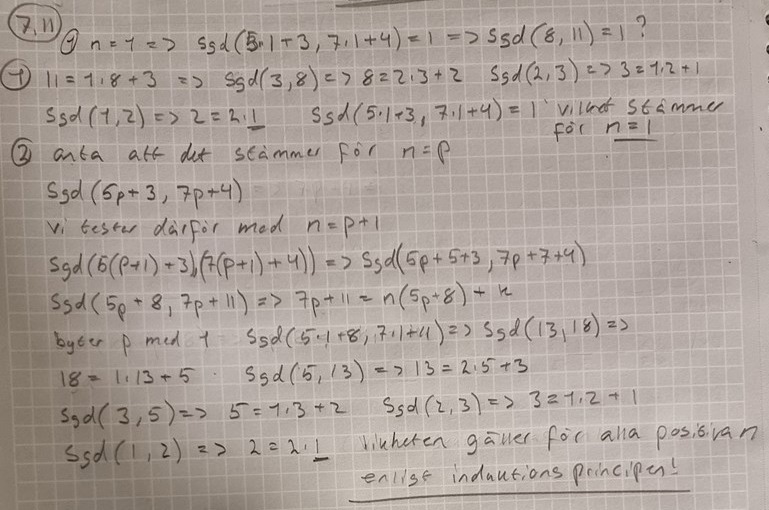 7.11
1) n=1 => Sgd(5·1+3, 7·1+4) = 1 => Sgd(8, 11) = 1 ?
① 11 = 1·8+3 => Sgd(3,8) => 8=2·3+2 Sgd(2,3) => 3=1·2+1
Sgd(1,2) => 2=2·1 Sgd(5·1+3, 7·1+4) = 1 vilket stämmer
för n=1
② anta att det stämmer för n=p
Sgd(5p+3, 7p+4)
vi testar därför med n=p+1
Sgd(5(p+1)+3),(7(p+1)+4)) => Sgd(5p+5+3, 7p+7+4)
Sgd(5p+8, 7p+11) => 7p+11 = n(5p+8) + k
byter p med 1 Sgd(5·1+8, 7·1+11) => Sgd(13,18) =>
18 = 1·13+5 · Sgd(5,13) => 13=2·5+3
Sgd(3,5) => 5=1·3+2 Sgd(2,3) => 3=1·2+1
Sgd(1,2) => 2=2·1 likheten gäller för alla positiva n
enligt induktions principen!